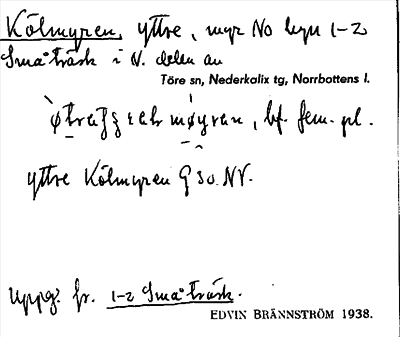 Kölmyren, yttre, myr No byn 1-2
Småträsk i N. delen av
Töre sn, Nederkalix tg, Norrbottens l.
bf. fem. pl.
yttre Kölmyren G 30 NV.
Uppg. fr. 1-2 Småträsk.
EDVIN BRÄNNSTRÖM 1938.